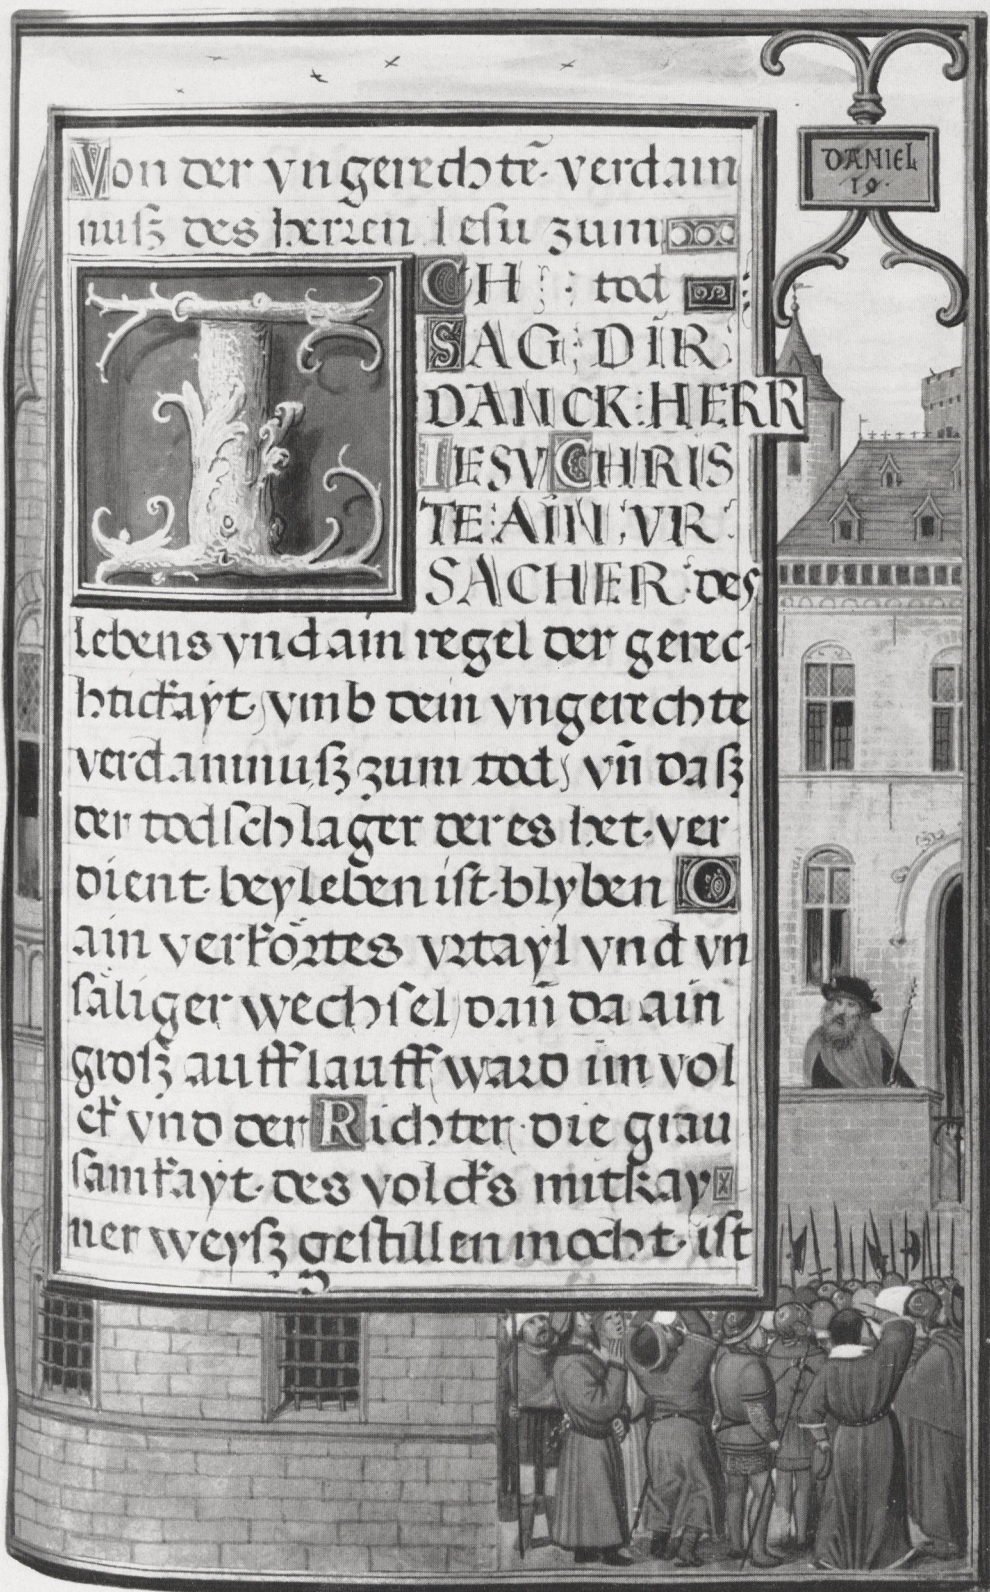 Von der vngerechtē· verdam
nuſz des herren Ieſu zum
ICH tod
SAG DIR
DANCK HERR
IESV CHRIS
TE AIN VR
SACHER des
lebens vnd ain regel der gerec-
htickayt, vmb dein vngerechte
verdamnuſz zum tod, vn̄ daſz
der todſchlager der es het ver
dient beyleben iſt blyben O
ain verkörtes vrtayl vnd vn
ſäliger wechſel dan̄ da ain
groſz aufflauff ward im vol
ck vnd der Richter die grau
ſamkayt des volcks mit kay
ner weyſz geſtillen mocht iſt
DANIEL
19